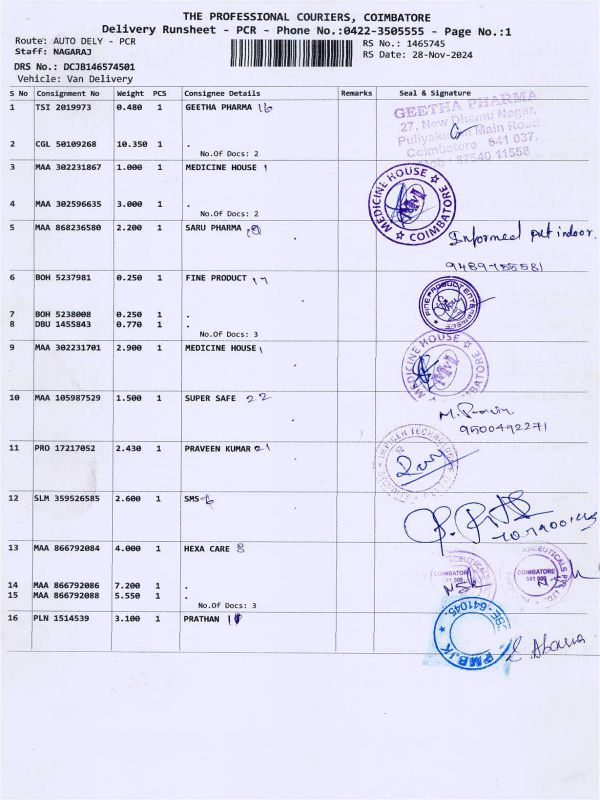 THE PROFESSIONAL COURIERS, COIMBATORE
Delivery Runsheet - PCR - Phone No.:0422-3505555 - Page No.:1
Route: AUTO DELY - PCR
Staff: NAGARAJ
RS No.: 1465745
RS Date: 28-Nov-2024
DRS No.: DCJB146574501
Vehicle: Van Delivery
S No Consignment No Weight PCS Consignee Details Remarks Seal & Signature
1 TSI 2019973 0.480 1 GEETHA PHARMA 16
GEETHA PHARMA
27, New Dhamu Nagar,
Puliyakulam Main Road
Coimbatore 641 037.
87540 11558
2 CGL 50109268 10.350 1 .
No.Of Docs: 2
3 MAA 302231867 1.000 1 MEDICINE HOUSE 1
MEDICINE HOUSE ☆ COIMBATORE ☆
MM
4 MAA 302596635 3.000 1 .
No.Of Docs: 2
5 MAA 868236580 2.200 1 SARU PHARMA
Informed put indoor.
6 BOH 5237981 0.250 1 FINE PRODUCT 17
FINE PRODUCT ENTERPRISES
7 BOH 5238008 0.250 1 .
8 DBU 1455843 0.770 1 .
No.Of Docs: 3
9 MAA 302231701 2.900 1 MEDICINE HOUSE 1
MEDICINE HOUSE ☆ COIMBATORE ☆
MM
10 MAA 105987529 1.500 1 SUPER SAFE 22
9500492271
11 PRO 17217052 2.430 1 PRAVEEN KUMAR 21
12 SLM 359526585 2.600 1 SMS
13 MAA 866792084 4.000 1 HEXA CARE 8
COIMBATORE
COIMBATORE
14 MAA 866792086 7.200 1 .
15 MAA 866792088 5.550 1 .
No.Of Docs: 3
16 PLN 1514539 3.100 1 PRATHAN
PMBJK ★ CBE-641045.